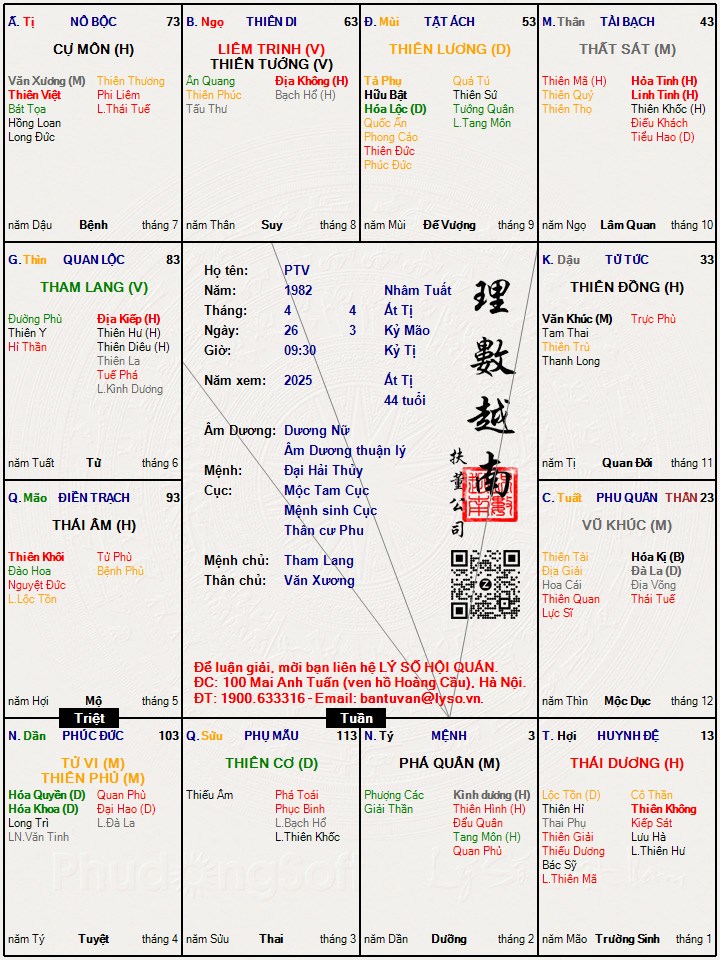 Ấ. Tị NÔ BỘC 73
CỰ MÔN (H)
Văn Xương (M) Thiên Thương
Thiên Việt Phi Liêm
Bát Tọa L.Thái Tuế
Hồng Loan
Long Đức
năm Dậu Bệnh tháng 7
B. Ngọ THIÊN DI 63
LIÊM TRINH (V)
THIÊN TƯỚNG (V)
Ân Quang Địa Không (H)
Thiên Phúc Bạch Hổ (H)
Tấu Thư
năm Thân Suy tháng 8
Đ. Mùi TẬT ÁCH 53
THIÊN LƯƠNG (D)
Tả Phụ Quả Tú
Hữu Bật Thiên Sứ
Hóa Lộc (D) Tướng Quân
Quốc Ấn L.Tang Môn
Phong Cáo
Thiên Đức
Phúc Đức
năm Mùi Đế Vượng tháng 9
M. Thân TÀI BẠCH 43
THẤT SÁT (M)
Thiên Mã (H) Hỏa Tinh (H)
Thiên Quý Linh Tinh (H)
Thiên Thọ Thiên Khốc (H)
Điếu Khách
Tiểu Hao (D)
năm Ngọ Lâm Quan tháng 10
G. Thìn QUAN LỘC 83
THAM LANG (V)
Đường Phù Địa Kiếp (H)
Thiên Y Thiên Hư (H)
Hỉ Thần Thiên Diêu (H)
Thiên La
Tuế Phá
L.Kình Dương
năm Tuất Tử tháng 6
Họ tên: PTV
Năm: 1982 Nhâm Tuất
Tháng: 4 4 Ất Tị
Ngày: 26 3 Kỷ Mão
Giờ: 09:30 Kỷ Tị
Năm xem: 2025 Ất Tị
44 tuổi
Âm Dương: Dương Nữ
Âm Dương thuận lý
Mệnh: Đại Hải Thủy
Cục: Mộc Tam Cục
Mệnh sinh Cục
Thân cư Phu
Mệnh chủ: Tham Lang
Thân chủ: Văn Xương
理數越南
扶董公司
Để luận giải, mời bạn liên hệ LÝ SỐ HỘI QUÁN.
ĐC: 100 Mai Anh Tuấn (ven hồ Hoàng Cầu), Hà Nội.
ĐT: 1900.633316 - Email: bantuvan@lyso.vn.
K. Dậu TỬ TỨC 33
THIÊN ĐỒNG (H)
Văn Khúc (M) Trực Phù
Tam Thai
Thiên Trù
Thanh Long
năm Tị Quan Đới tháng 11
Q. Mão ĐIỀN TRẠCH 93
THÁI ÂM (H)
Thiên Khôi Tử Phù
Đào Hoa Bệnh Phù
Nguyệt Đức
L.Lộc Tồn
năm Hợi Mộ tháng 5
C. Tuất PHU QUÂN THÂN 23
VŨ KHÚC (M)
Thiên Tài Hóa Kị (B)
Địa Giải Đà La (D)
Hoa Cái Địa Võng
Thiên Quan Thái Tuế
Lực Sĩ
năm Thìn Mộc Dục tháng 12
Triệt
Tuần
N. Dần PHÚC ĐỨC 103
TỬ VI (M)
THIÊN PHỦ (M)
Hóa Quyền (D) Quan Phù
Hóa Khoa (D) Đại Hao (D)
Long Trì L.Đà La
LN.Văn Tinh
năm Tý Tuyệt tháng 4
Q. Sửu PHỤ MẪU 113
THIÊN CƠ (D)
Thiếu Âm Phá Toái
Phục Binh
L.Bạch Hổ
L.Thiên Khốc
năm Sửu Thai tháng 3
N. Tý MỆNH 3
PHÁ QUÂN (M)
Phượng Các Kình dương (H)
Giải Thần Thiên Hình (H)
Đẩu Quân
Tang Môn (H)
Quan Phủ
năm Dần Dưỡng tháng 2
T. Hợi HUYNH ĐỆ 13
THÁI DƯƠNG (H)
Lộc Tồn (D) Cô Thần
Thiên Hỉ Thiên Không
Thai Phụ Kiếp Sát
Thiên Giải Lưu Hà
Thiếu Dương L.Thiên Hư
Bác Sỹ
L.Thiên Mã
năm Mão Trường Sinh tháng 1